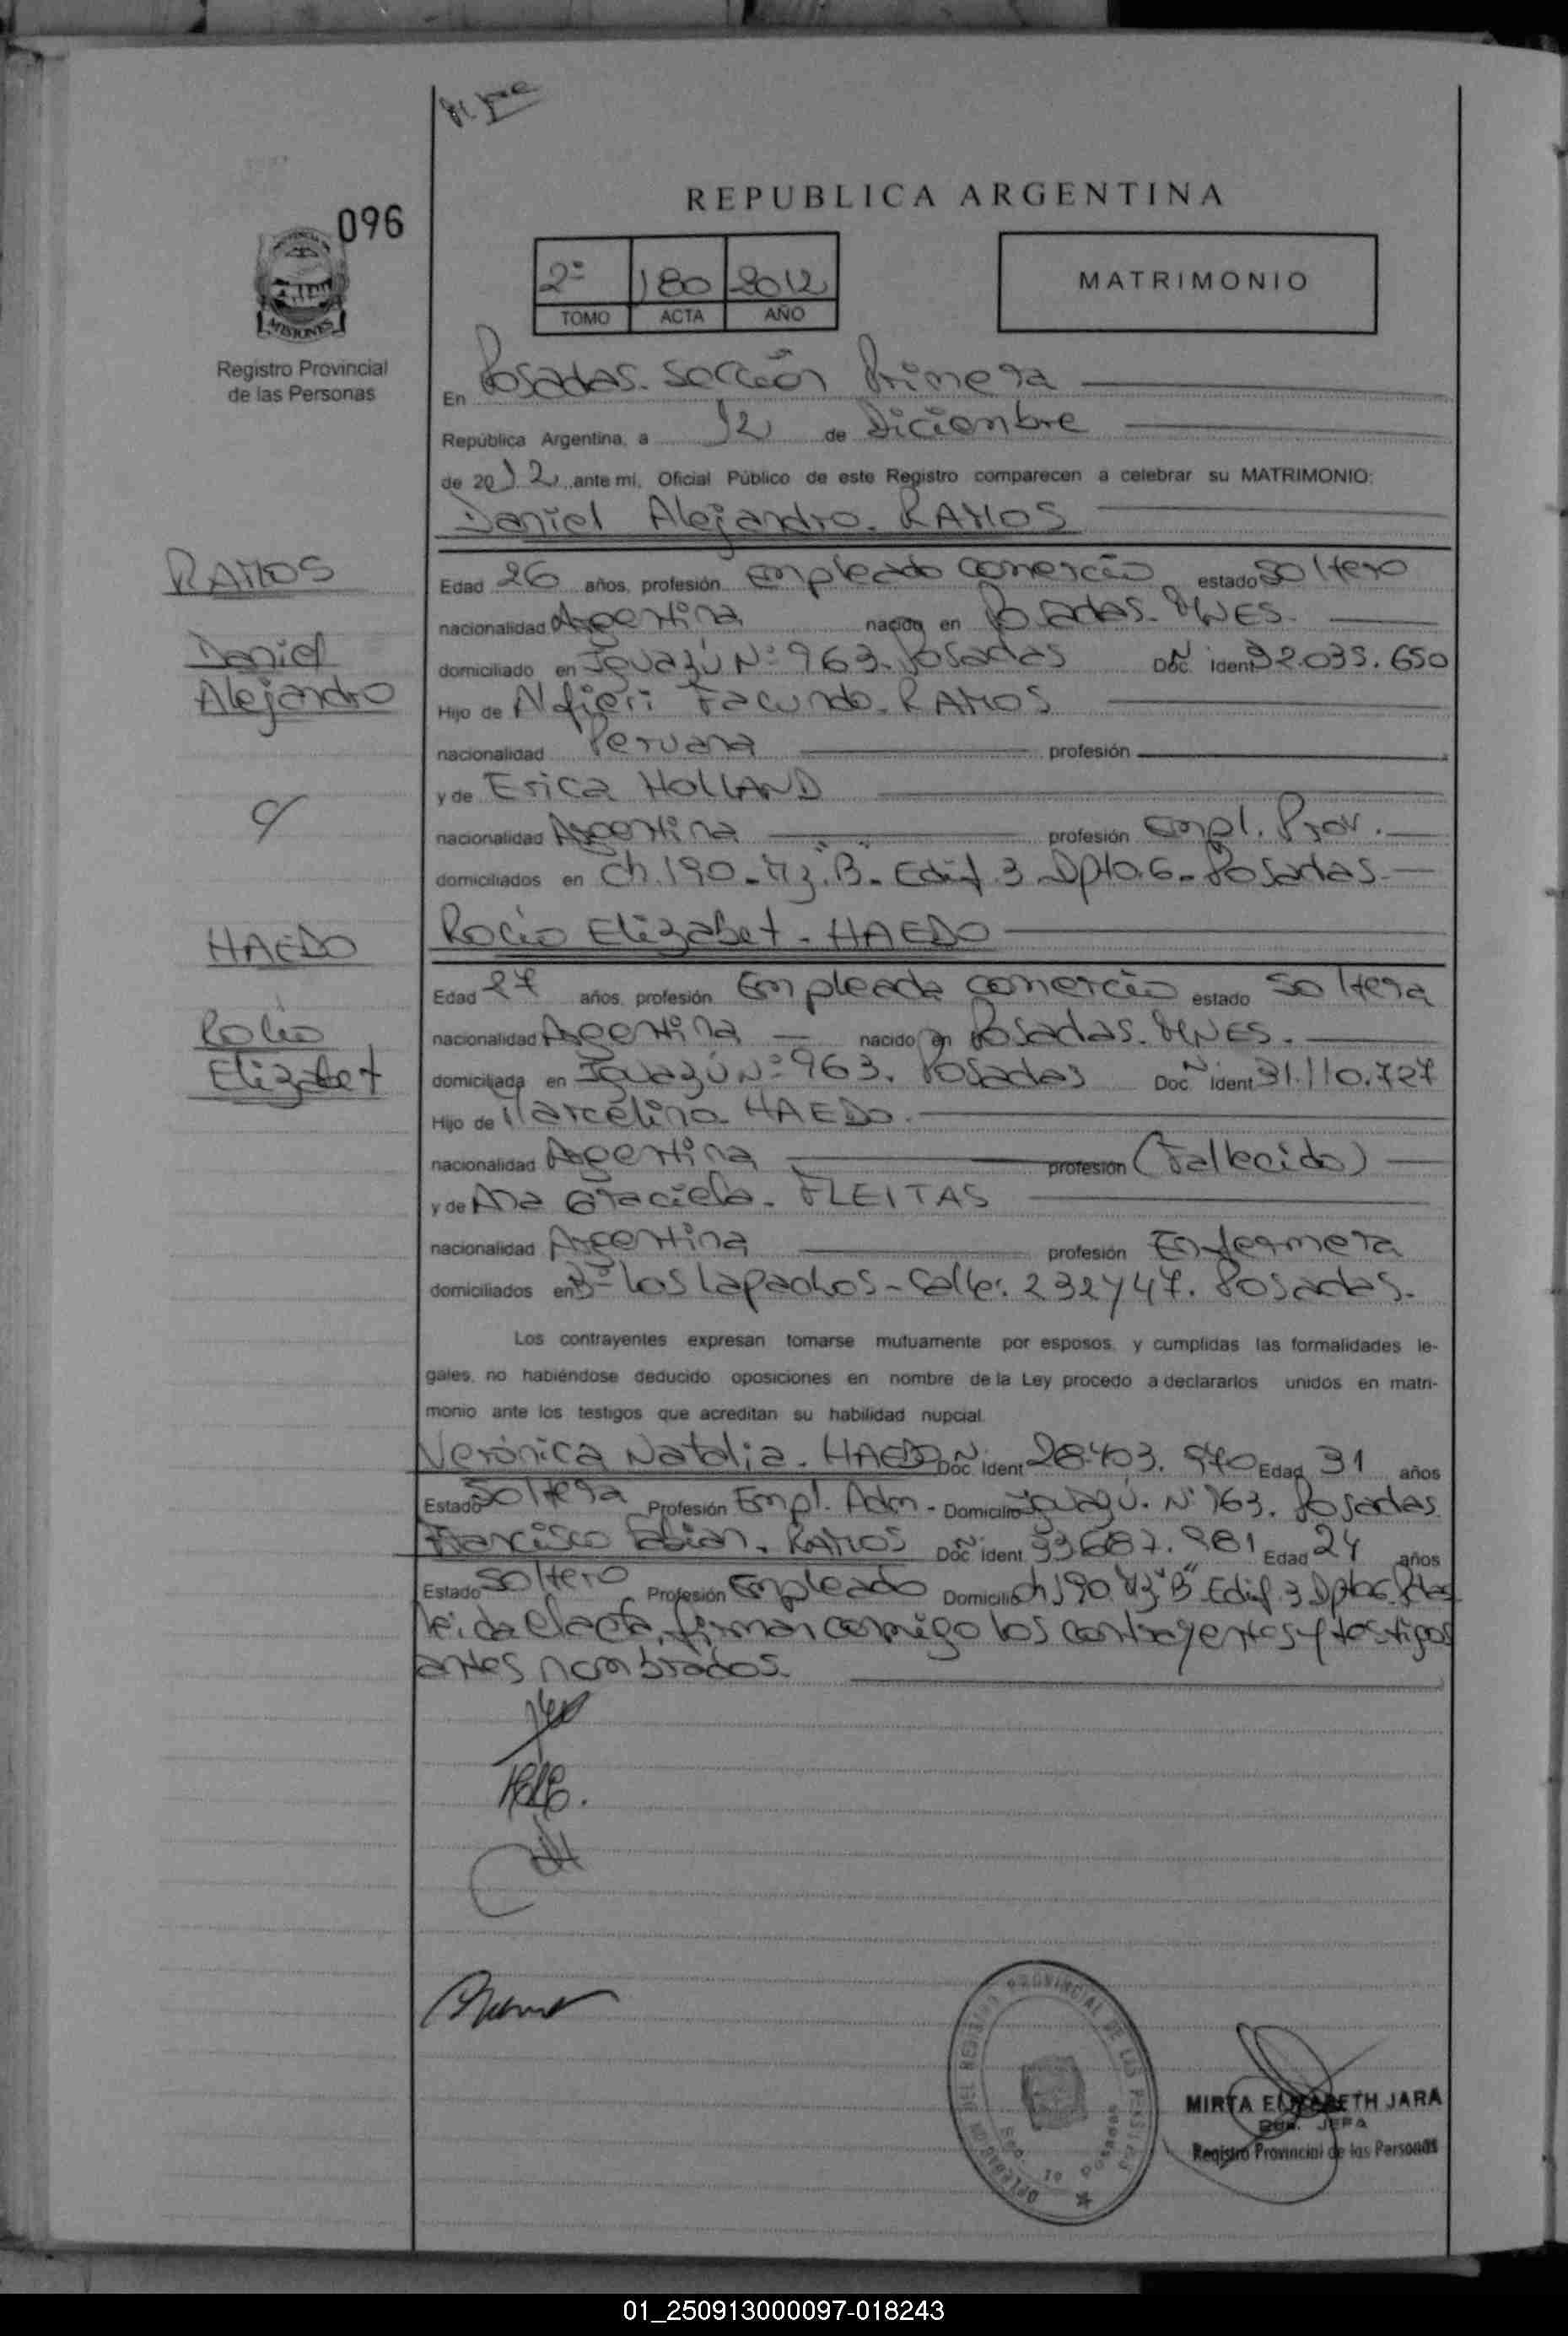 REPUBLICA ARGENTINA
096
2º 180 2012
TOMO ACTA AÑO
MATRIMONIO
MISIONES
Registro Provincial
de las Personas
En Posadas. Sección Primera
República Argentina, a 12 de Diciembre
de 2012 ante mí, Oficial Público de este Registro comparecen a celebrar su MATRIMONIO:
Daniel Alejandro. RAMOS
RAMOS
Daniel
Alejandro
Edad 26 años, profesión Empleado Comercio estado Soltero
nacionalidad Argentina nacido en Posadas. MNES.
domiciliado en Iguazú Nº 963. Posadas Doc. Ident 32.035.650
Hijo de Alfieri Facundo. RAMOS
nacionalidad Peruana profesión
y de Erica HOLLAND
nacionalidad Argentina profesión Empl. Prov.
domiciliados en Ch.190. Mz."B". Edif.3 Dpto.6. Posadas.
y
HAEDO
Rocío
Elizabet
Rocío Elizabet. HAEDO
Edad 27 años, profesión Empleada comercio estado Soltera
nacionalidad Argentina nacido en Posadas. MNES.
domiciliada en Iguazú Nº 963. Posadas Doc Ident 31.110.727
Hijo de Marcelino. HAEDO.
nacionalidad Argentina profesión (Fallecido)
y de Ana Graciela. FLEITAS
nacionalidad Argentina profesión Enfermera
domiciliados en Bº Los Lapachos - Calle: 232 y 47. Posadas.
Los contrayentes expresan tomarse mutuamente por esposos, y cumplidas las formalidades le-
gales, no habiéndose deducido oposiciones en nombre de la Ley procedo a declararlos unidos en matri-
monio ante los testigos que acreditan su habilidad nupcial.
Verónica Natalia. HAEDO Doc Ident 28.403.970 Edad 31 años
Estado Soltera Profesión Empl. Adm. Domicilio Iguazú. Nº 963. Posadas
Francisco Fabián. RAMOS Doc Ident 33.687.981 Edad 24 años
Estado Soltero Profesión Empleado Domicilio Ch 190 Mz"B" Edif.3 Dpto6. Pdas
Leída el acta, firman conmigo los contrayentes y testigos
antes nombrados.
DELEGACION DEL REGISTRO PROVINCIAL DE LAS PERSONAS
Posadas
MIRTA ELIZABETH JARA
JEFA
Registro Provincial de las Personas
01_250913000097-018243